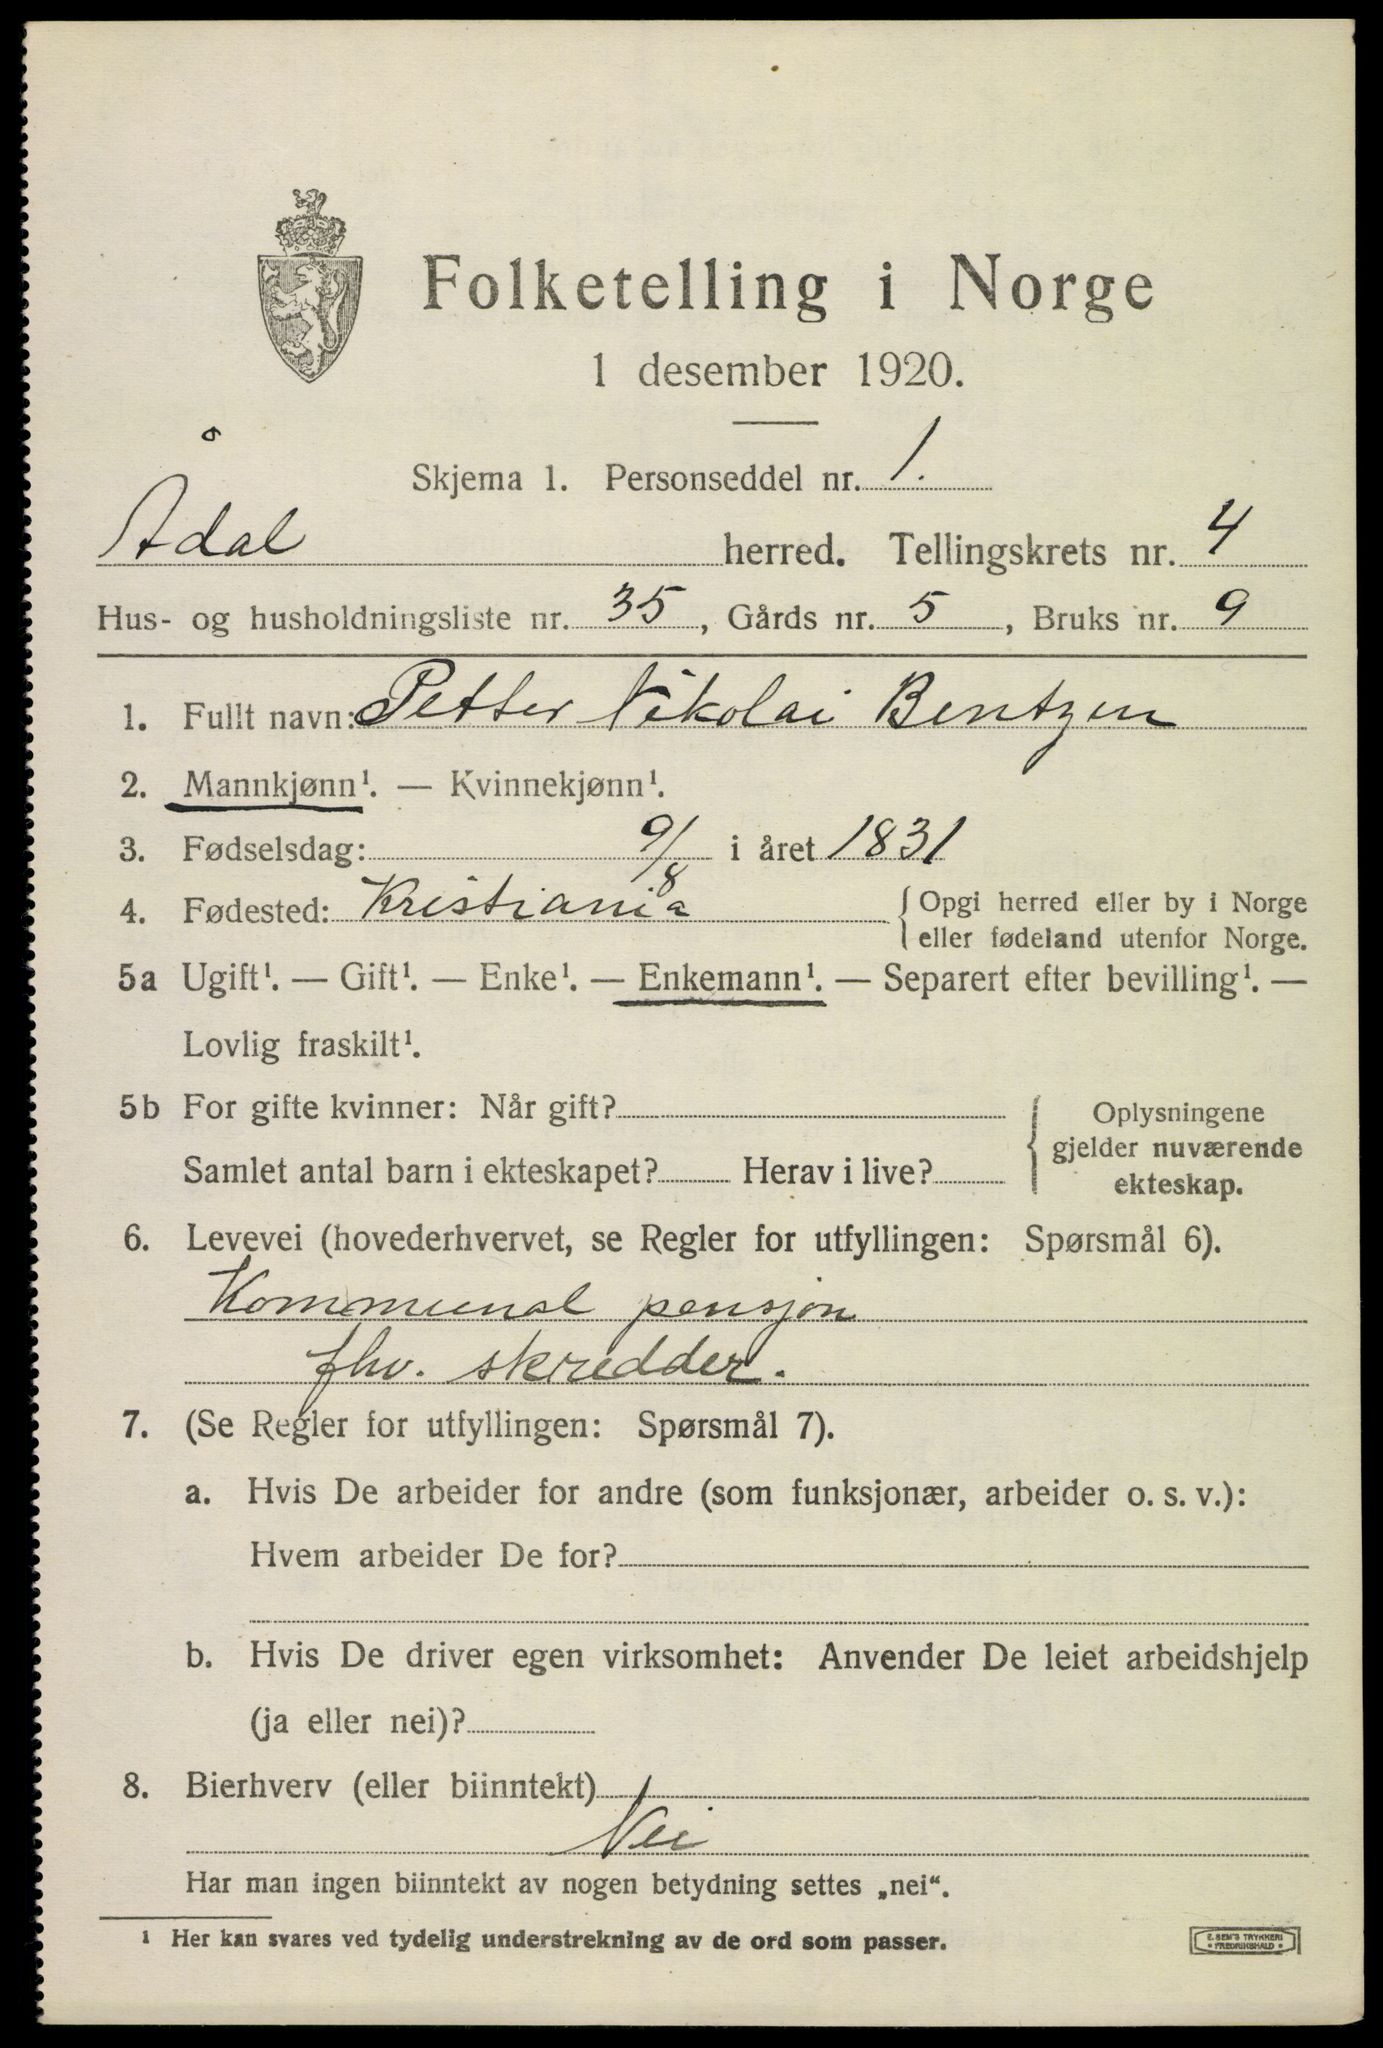 Folketelling i Norge
1 desember 1920.
Skjema 1. Personseddel nr. 1.
Ådal herred. Tellingskrets nr. 4
Hus- og husholdningsliste nr. 35, Gårds nr. 5, Bruks nr. 9
1. Fullt navn: Petter Nikolai Bentzen
2. Mannkjønn¹. — Kvinnekjønn¹.
3. Fødselsdag: 9/8 i året 1831
4. Fødested: Kristiania { Opgi herred eller by i Norge
eller fødeland utenfor Norge.
5a Ugift¹. — Gift¹. — Enke¹. — Enkemann¹. — Separert efter bevilling¹. —
Lovlig fraskilt¹.
5b For gifte kvinner: Når gift? { Oplysningene
gjelder nuværende
Samlet antal barn i ekteskapet? Herav i live? ekteskap.
6. Levevei (hovederhvervet, se Regler for utfyllingen: Spørsmål 6).
Kommunal pensjon
fhv. skredder.
7. (Se Regler for utfyllingen: Spørsmål 7).
a. Hvis De arbeider for andre (som funksjonær, arbeider o. s. v.):
Hvem arbeider De for?
b. Hvis De driver egen virksomhet: Anvender De leiet arbeidshjelp
(ja eller nei)?
8. Bierhverv (eller biinntekt)
Nei
Har man ingen biinntekt av nogen betydning settes „nei“.
¹ Her kan svares ved tydelig understrekning av de ord som passer.
E. SEM'S TRYKKERI
• FREDRIKSHALD •